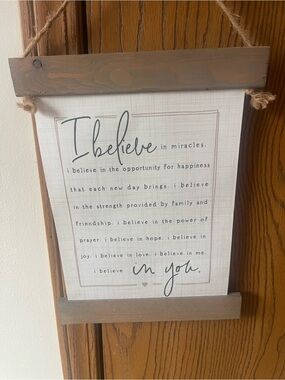 I believe in miracles.
i believe in the opportunity for happiness
that each new day brings. i believe
in the strength provided by family and
friendship. i believe in the power of
prayer. i believe in hope. i believe in
joy. i believe in love. i believe in me.
i believe in you.